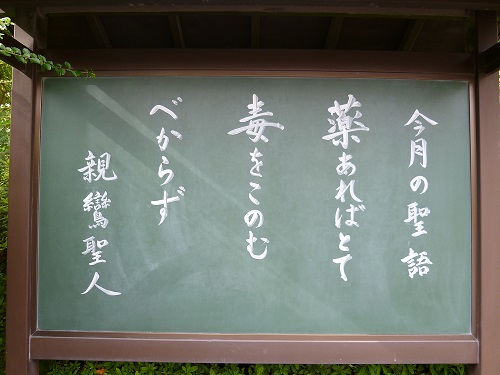 今月の聖語
薬あればとて
毒をこのむ
べからず
親鸞聖人